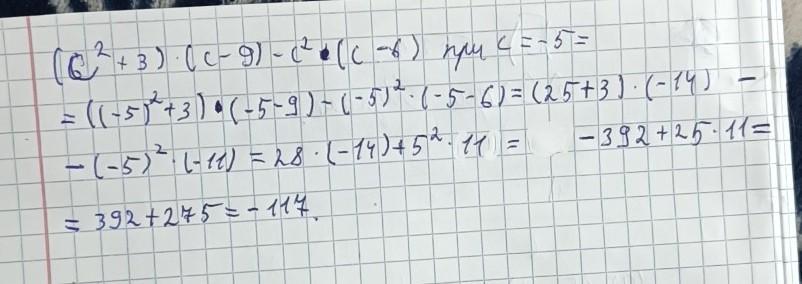 (c² + 3) · (c - 9) - c² · (c - 6) при c = -5 =
= ((-5)² + 3) · (-5 - 9) - (-5)² · (-5 - 6) = (25 + 3) · (-14) -
- (-5)² · (-11) = 28 · (-14) + 5² · 11 = - 392 + 25 · 11 =
= 392 + 275 = - 117.